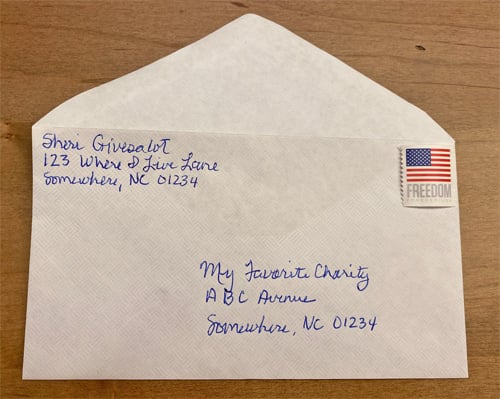 Sheri Givesalot
123 Where I Live Lane
Somewhere, NC 01234
FREEDOM
My Favorite Charity
ABC Avenue
Somewhere, NC 01234